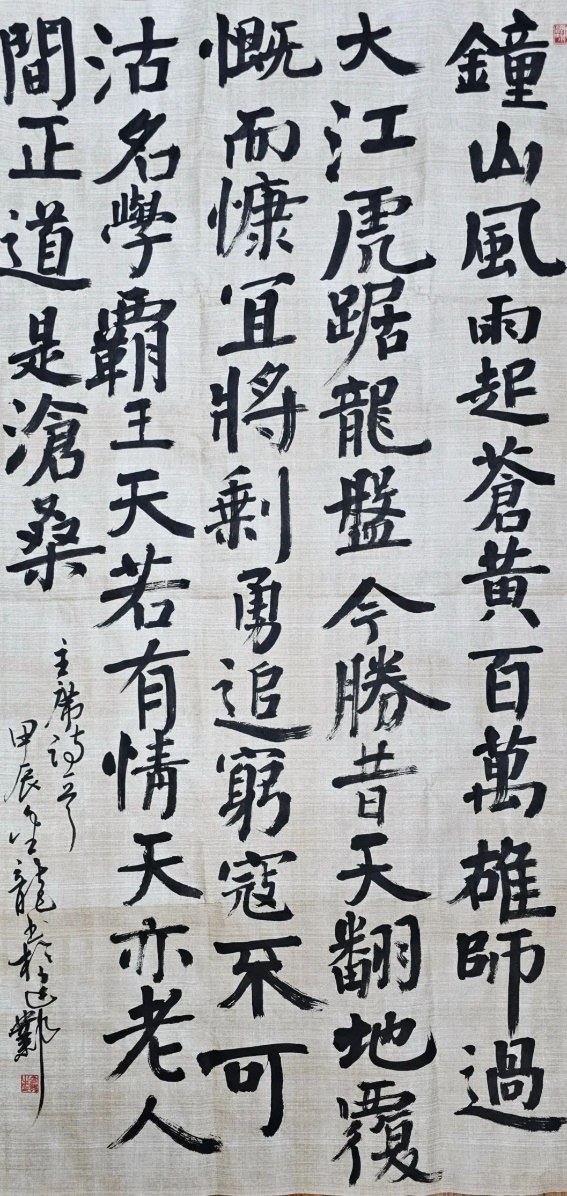 鐘山風雨起蒼黃百萬雄師過
大江虎踞龍盤今勝昔天翻地覆
慨而慷宜將剩勇追窮寇不可
沽名學霸王天若有情天亦老人
間正道是滄桑
主席詩一首
甲辰龍書於建鄴